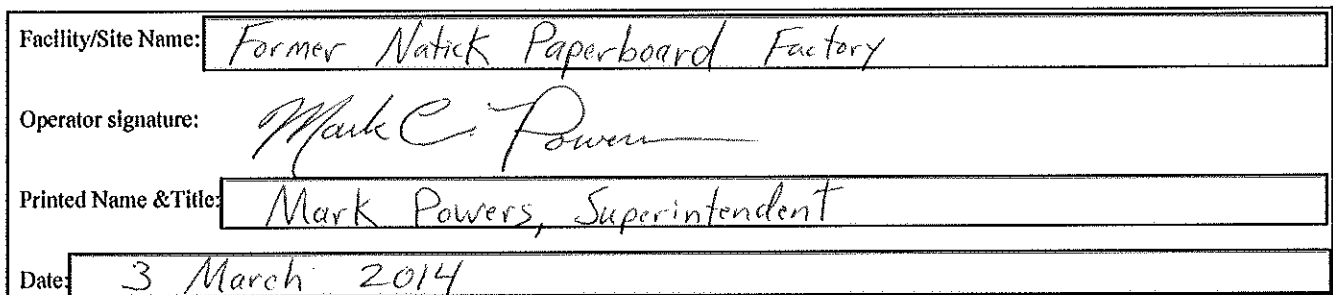 Facility/Site Name: Former Natick Paperboard Factory
Operator signature: Mark C. Powers
Printed Name &Title: Mark Powers, Superintendent
Date: 3 March 2014